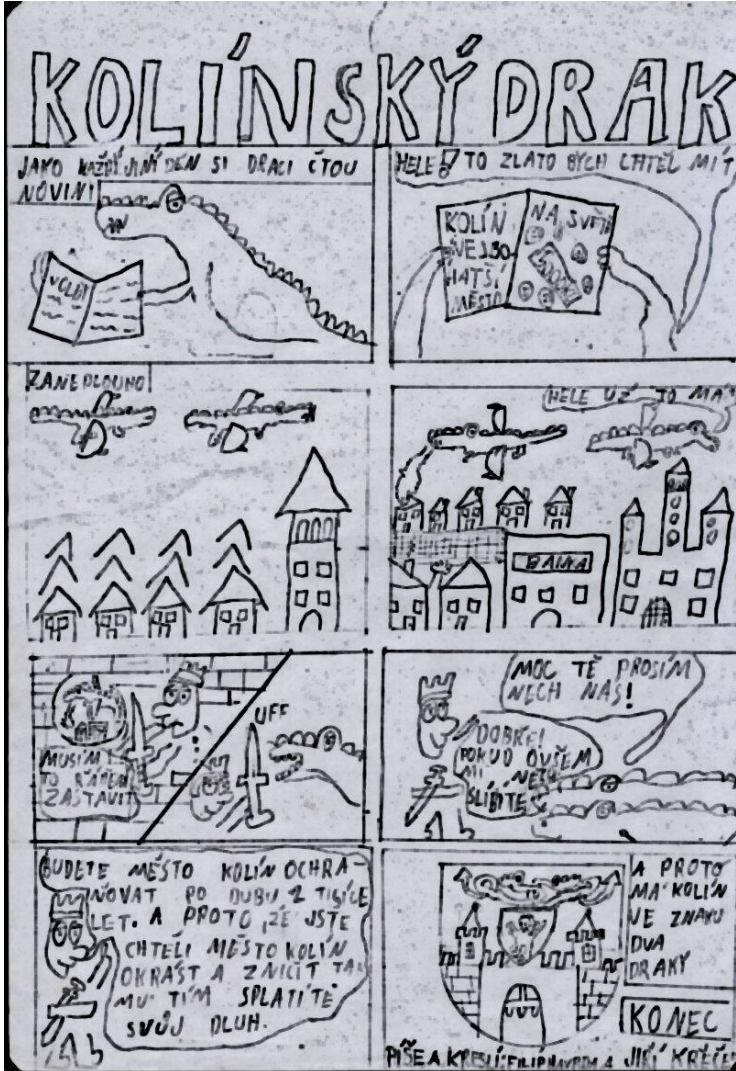 KOLÍNSKÝ DRAK
JAKO KAŽDÝ JINÝ DEN SI DRACI ČTOU
NOVINI
HELE! TO ZLATO BYCH CHTĚL MÍT
KOLÍN
NEJBO
HATŠÍ
MĚSTO
NA SVĚTĚ
ZANEDLOUHO
HELE UŽ TO
BANKA
MUSÍM
TO
ZASTAVIT
UFF
MOC TĚ PROSÍM
NECH NÁS!
DOBŘE!
POKUD OVŠEM
MI
SLÍBÍTE
BUDETE MĚSTO KOLÍN OCHRA-
ŇOVAT PO DOBU 2 TISÍCE
LET. A PROTO, ŽE JSTE
CHTĚLI MĚSTO KOLÍN
OKRÁST A ZNIČIT TA-
MU TÍM SPLATÍTE
SVŮJ DLUH.
A PROTO
MÁ KOLÍN
VE ZNAKU
DVA
DRAKY
KONEC
PÍŠE A KRESLÍ: FILIP A JIŘÍ